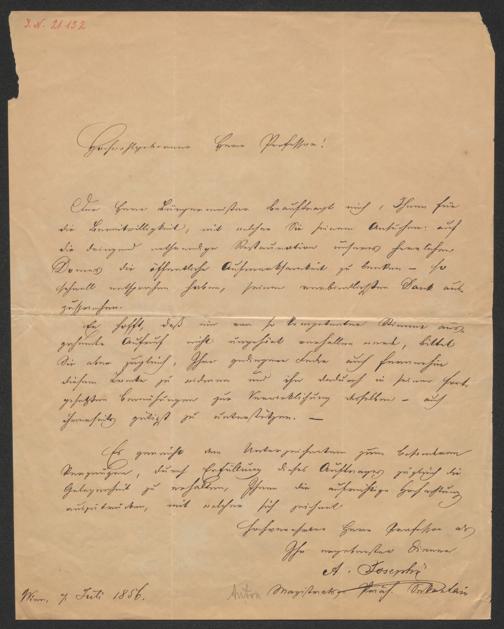 I. N. 21.132
Hochwohlgeborener Herr Professor!
Der Herr Bürgermeister beauftragt mich, Ihnen für
die Bereitwilligkeit, mit welcher Sie seinem Ansuchen: auf
die dringend nothwendige Restauration unseres herrlichen
Domes die öffentliche Aufmerksamkeit zu lenken – so
schnell entsprochen haben, seinen verbindlichsten Dank aus
zusprechen.
Er hofft, daß ein von so kompetenter Stimme aus
gehender Aufruf nicht ungehört verhallen werde, bittet
Sie aber zugleich, Ihre gediegene Feder auch fernerhin
diesem Zwecke zu widmen und ihn dadurch in seinen fort
gesetzten Bemühungen zur Verwirklichung desselben – auch
Ihrerseits gütigst zu unterstützen. –
Es gereicht dem Unterzeichneten zum besonderen
Vergnügen, durch Erfüllung dieses Auftrages zugleich die
Gelegenheit zu erhalten, Ihnen die aufrichtige Hochachtung
auszudrücken, mit welcher sich zeichnet
Hochverehrter Herr Professor als
Ihr ergebenster Diener
A.
Magistrats
Wien, 7. Juli 1856.
Anton